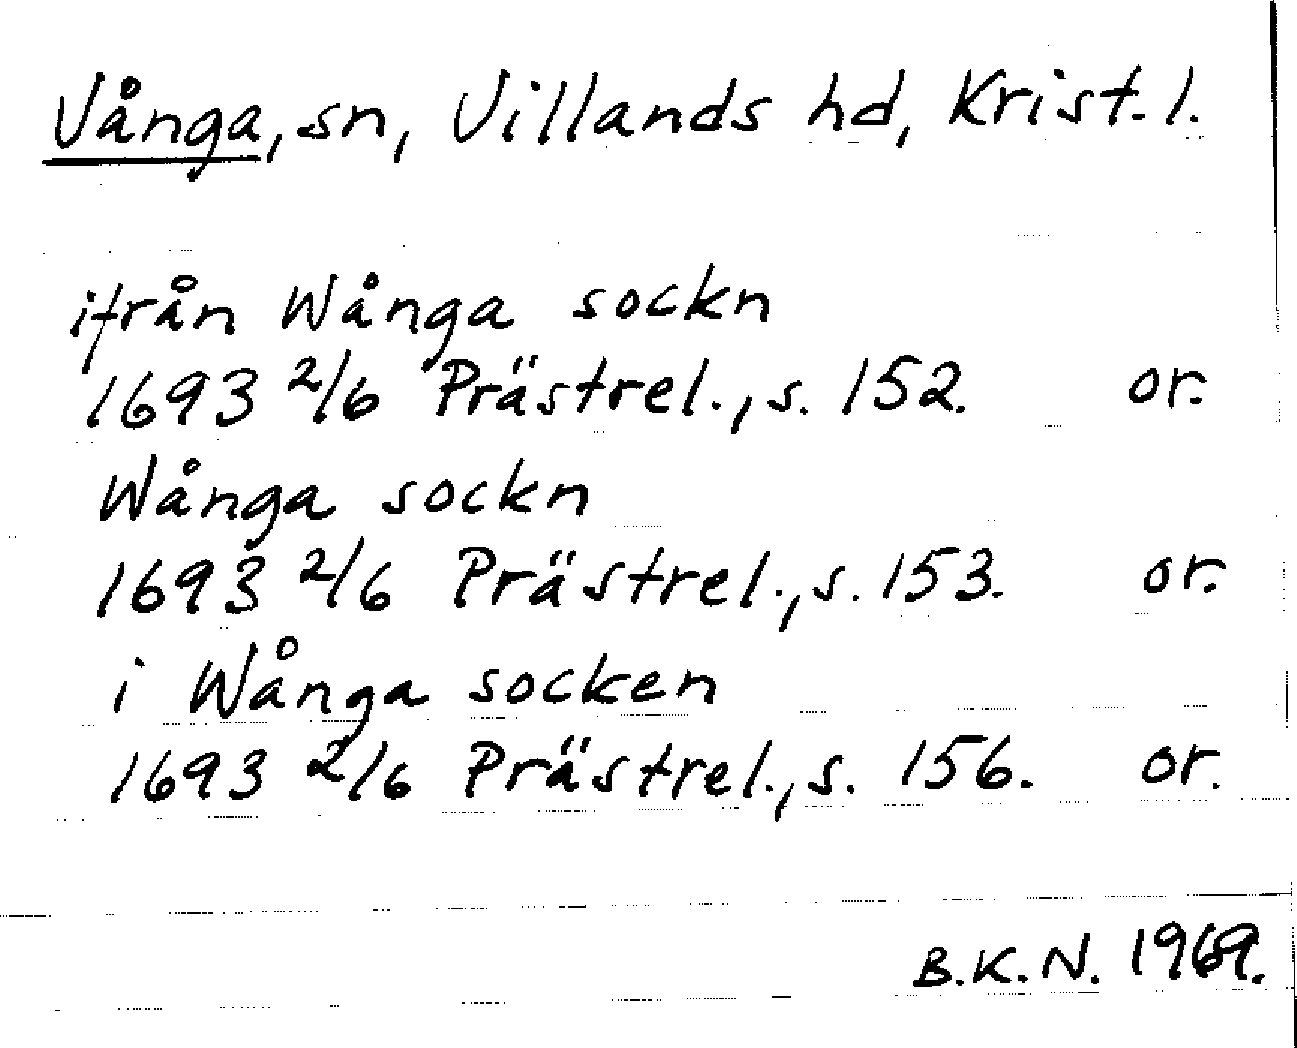 Vånga, sn, Villands hd, Krist. l.
ifrån Wånga sockn
1693 2/6 Prästrel., s. 152. or.
Wånga sockn
1693 2/6 Prästrel., s. 153. or.
i Wånga socken
1693 2/6 Prästrel., s. 156. or.
B.K.N. 1969.